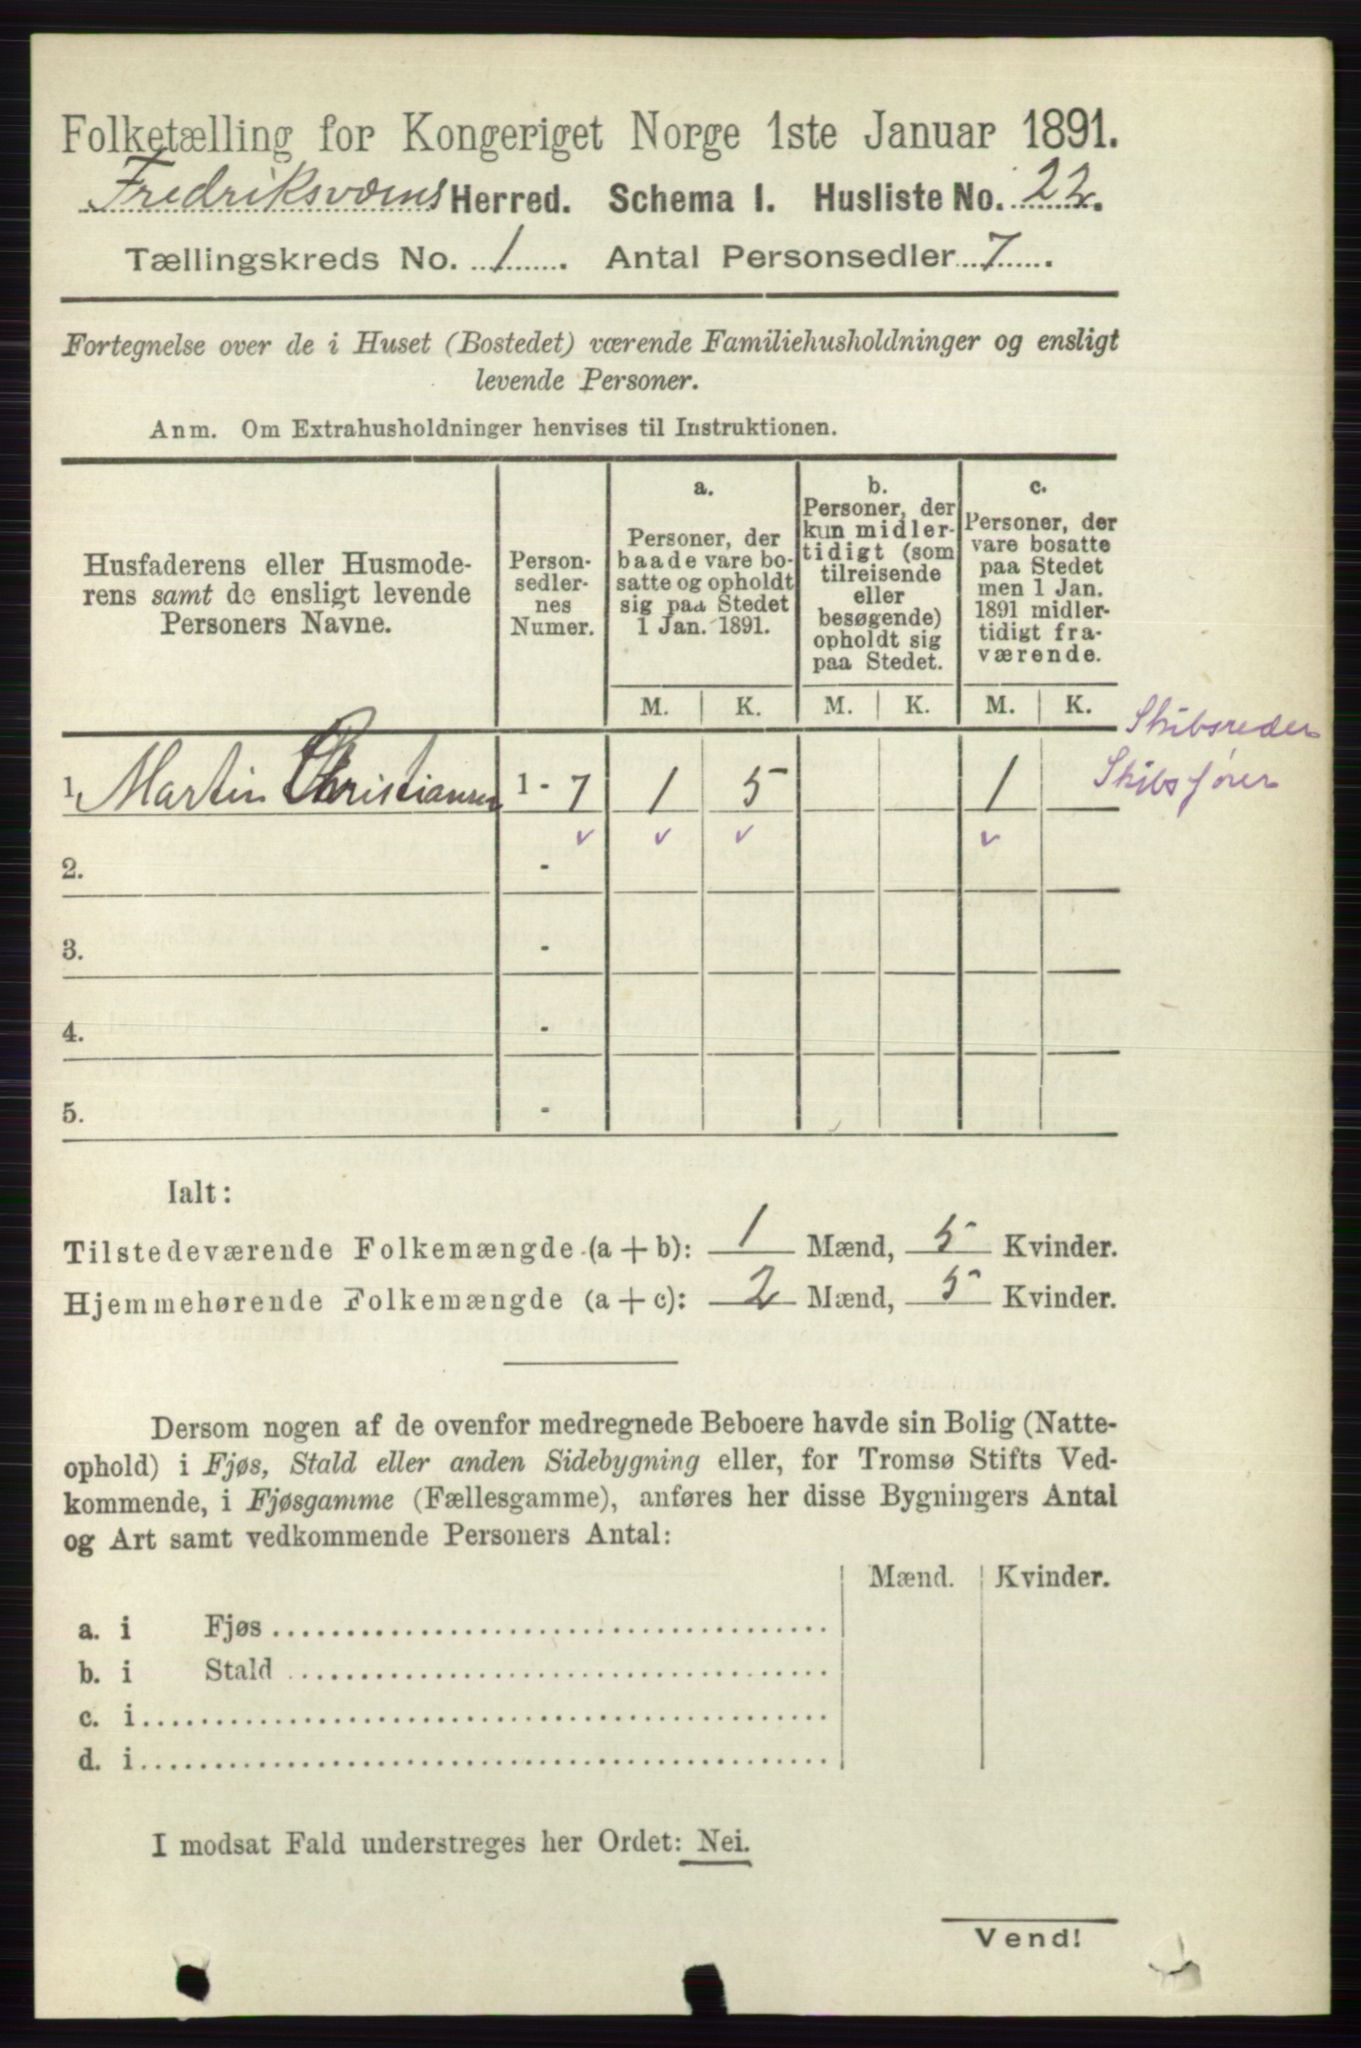 Folketælling for Kongeriget Norge 1ste Januar 1891.
Fredriksværns Herred. Schema I. Husliste No. 22.
Tællingskreds No. 1. Antal Personsedler 7.
Fortegnelse over de i Huset (Bostedet) værende Familiehusholdninger og ensligt
levende Personer.
Anm. Om Extrahusholdninger henvises til Instruktionen.
Husfaderens eller Husmode-
rens samt de ensligt levende
Personers Navne.
Person-
sedler-
nes
Numer.
a.
Personer, der
baade vare bo-
satte og opholdt
sig paa Stedet
1 Jan. 1891.
b.
Personer, der
kun midler-
tidigt (som
tilreisende
eller
besøgende)
opholdt sig
paa Stedet.
c.
Personer, der
vare bosatte
paa Stedet
men 1 Jan.
1891 midler-
tidigt fra-
værende.
M. K. M. K. M. K.
Skibsreder
1 Martin Christiansen 1 - 7 1 5 1 Skibsfører
2. -
3. -
4. -
5. -
Ialt:
Tilstedeværende Folkemængde (a + b): 1 Mænd, 5 Kvinder.
Hjemmehørende Folkemængde (a + c): 2 Mænd, 5 Kvinder.
Dersom nogen af de ovenfor medregnede Beboere havde sin Bolig (Natte-
ophold) i Fjøs, Stald eller anden Sidebygning eller, for Tromsø Stifts Ved-
kommende, i Fjøsgamme (Fællesgamme), anføres her disse Bygningers Antal
og Art samt vedkommende Personers Antal:
Mænd. Kvinder.
a. i Fjøs
b. i Stald
c. i
d. i
I modsat Fald understreges her Ordet: Nei.
Vend!